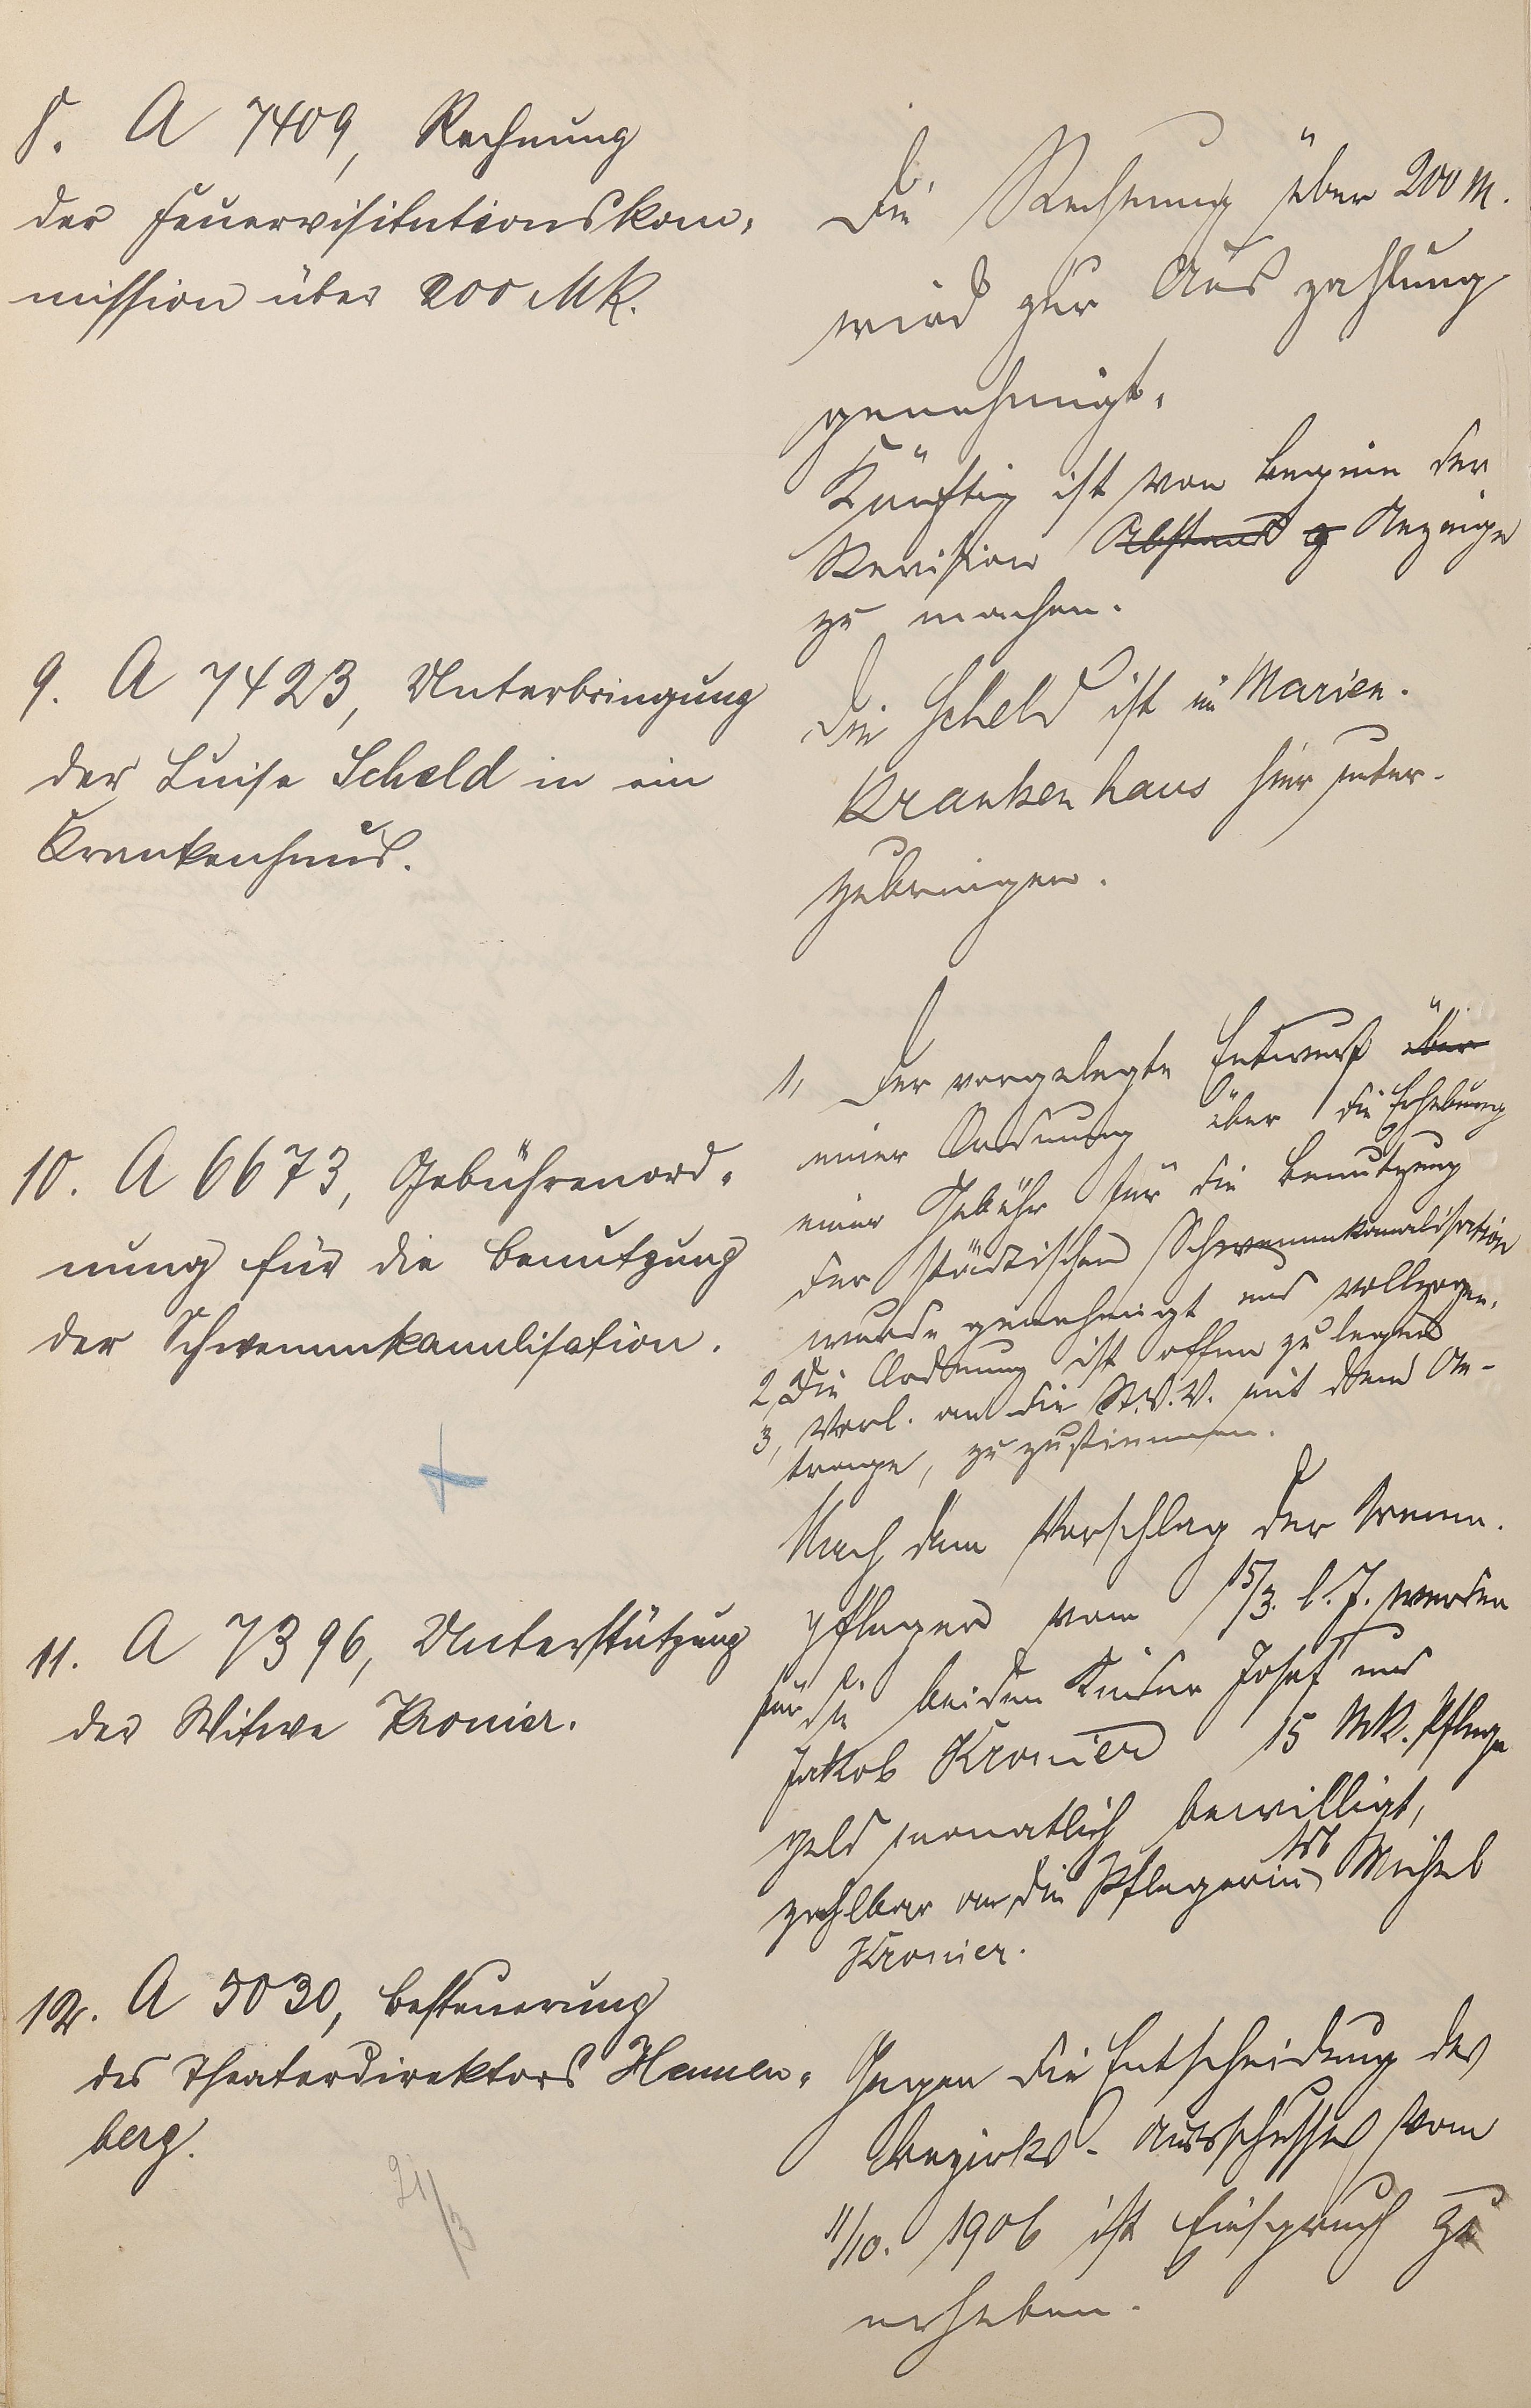 8. A 7409, Rechnung
der Feuervisitationskom-
mission über 200 Mk.
Die Rechnung über 200 M.
wird zur Auszahlung
genehmigt.
Künftig ist von Beginn der
Revision Abstand z Anzeige
zu machen.
9. A 7423, Unterbringung
der Luise Scheld in ein
Krankenhaus.
Die Scheld ist im Marien-
krankenhaus hier unter-
zubringen.
10. A 6673, Gebührenord-
nung für die Benutzung
der Schwemmkanalisation.
1, Der vorgelegte Entwurf über
einer Ordnung über die Erhebung
einer Gebühr für die Benutzung
der städtischen Schwemmkanalisation
wurde genehmigt und vollzogen.
2, Die Ordnung ist offen zu legen
3, Vorl. an die St.V.V. mit dem An-
trage, zuzustimmen.
11. A 7396, Unterstützung
der Witwe Kronier.
Nach dem Vorschlag der Armen-
pfleger vom 15/3. l. J. werden
für die beiden Kinder Josef und
Jakob Kronier 15 Mk. Pflege
geld monatlich bewilligt,
zahlbar an die Pflegerin Michel
Kronier.
12. A 5030, Besteuerung
des Theaterdirektors Hannen-
berg.
21/3
Gegen die Entscheidung des
Bezirks-Ausschusses vom
11/10. 1906 ist Einspruch zu
erheben.